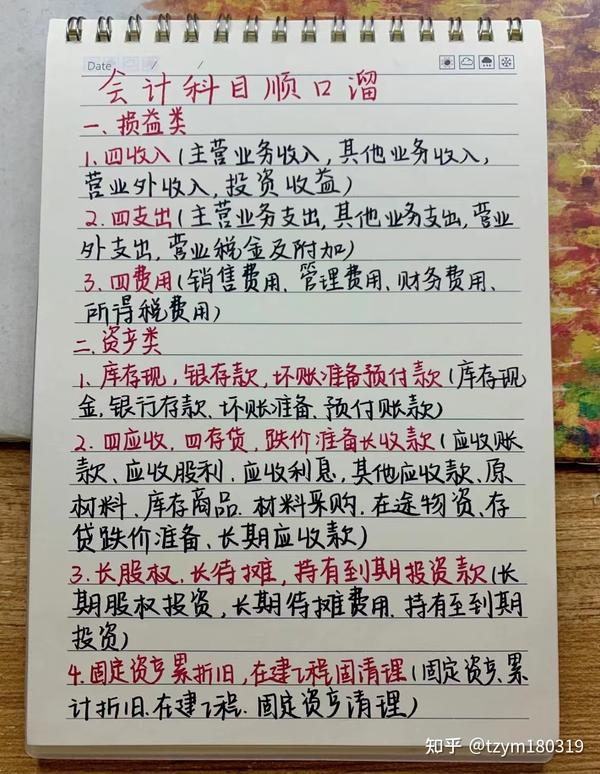 Date / /
会计科目顺口溜
一、损益类
1.四收入(主营业务收入,其他业务收入,
营业外收入,投资收益)
2.四支出(主营业务支出,其他业务支出,营业
外支出,营业税金及附加)
3.四费用(销售费用、管理费用、财务费用、
所得税费用)
二.资产类
1.库存现,银存款,坏账准备预付款(库存现
金,银行存款、坏账准备.预付账款)
2.四应收,四存货,跌价准备长收款(应收账
款、应收股利.应收利息,其他应收款、原
材料、库存商品.材料采购.在途物资、存
贷跌价准备、长期应收款)
3.长股权.长待摊,持有到期投资款(长
期股权投资,长期待摊费用.持有至到期
投资)
4.固定资产累折旧,在建工程固清理(固定资产、累
计折旧.在建工程.固定资产清理)
知乎 @tzym180319